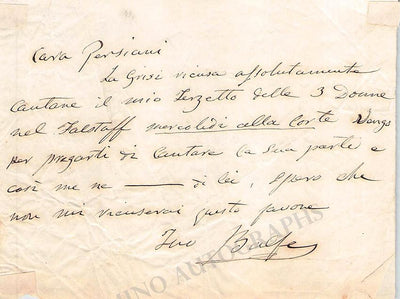 Cara Persiani
La Grisi ricusa assolutamente
Cantare il mio Terzetto delle 3 Donne
nel Falstaff mercoledi alla Corte Vengo
per pregarti di Cantare la sua parte e
così me ne —— di lei, spero che
non mi ricuserai questo favore
Tuo Balfe